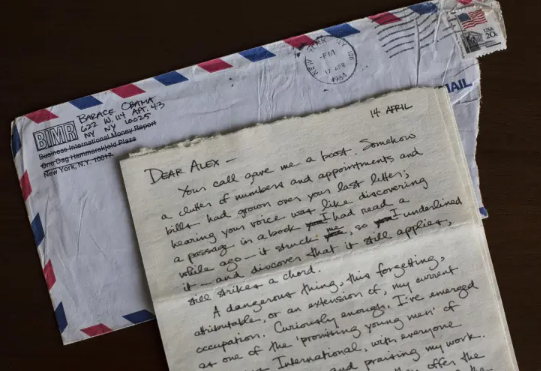 BARACK OBAMA
622 W. 114 APT. 43
NY NY 10025
BIMR
Business International Money Report
One Dag Hammarskjold Plaza
New York, N.Y. 10017
NEW YORK, NY
PM
APR
USA
20c
MAIL
14 APRIL
DEAR ALEX —
Your call gave me a boost. Somehow
a clutter of numbers and appointments and
bills had grown over your last letter;
hearing your voice was like discovering
a passage in a book I had read a
while ago — it struck me, so I underlined
it — and discover that it still applies,
still strikes a chord.
A dangerous thing, this forgetting,
attributable, or an extension of, my current
occupation. Curiously enough, I've emerged
as one of the "promising young men" of
International, with everyone
and praising my work.
offer the